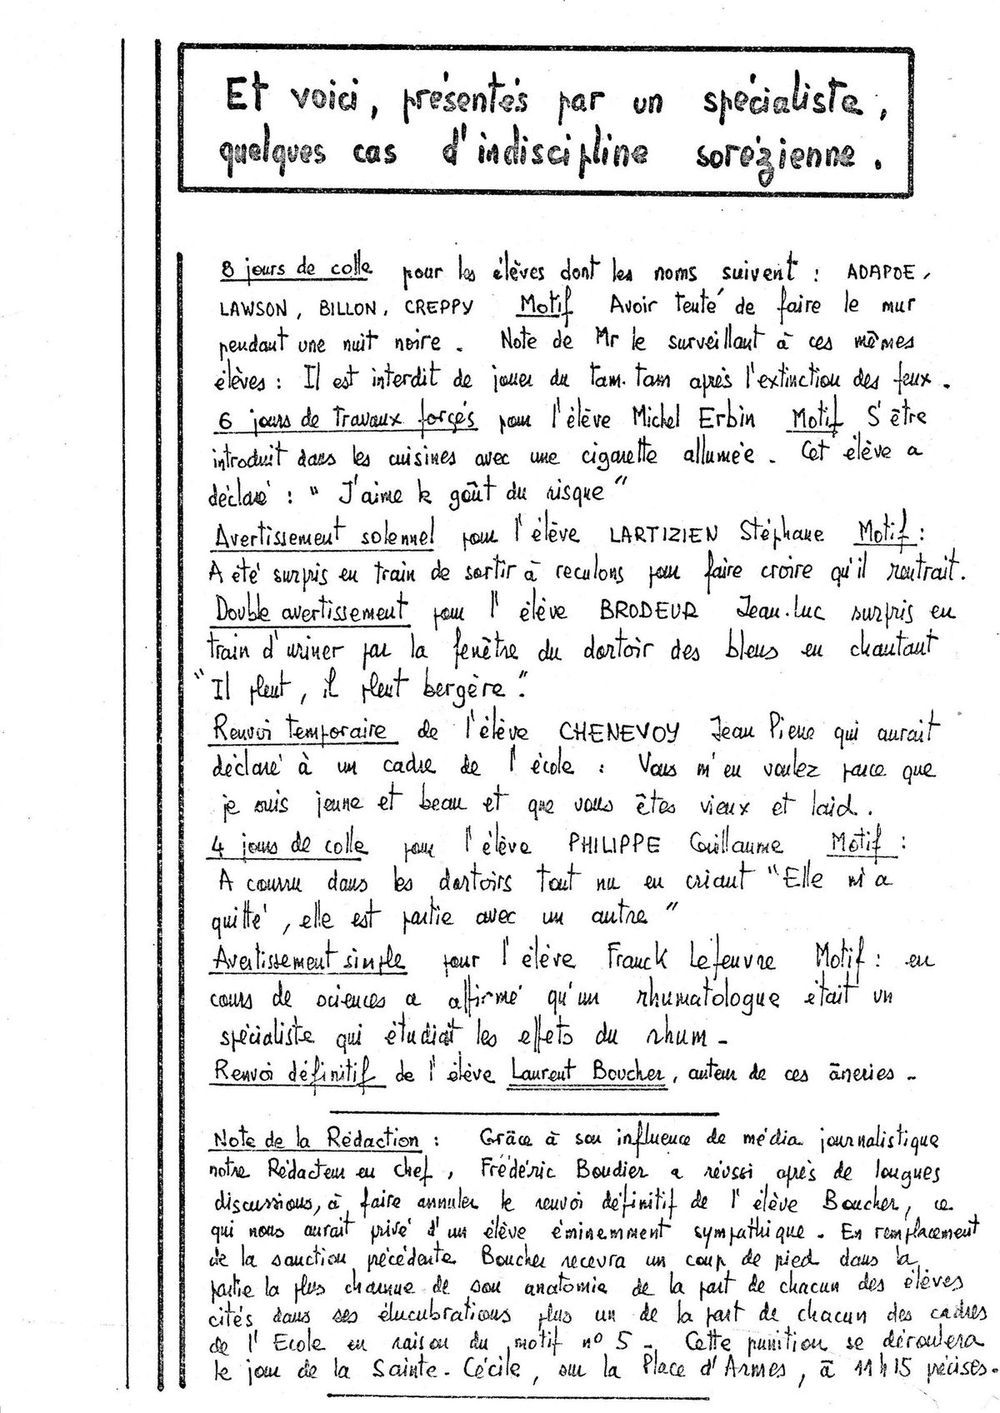 Et voici, présentés par un spécialiste,
quelques cas d'indiscipline sorézienne.
8 jours de colle pour les élèves dont les noms suivent : ADAPOE,
LAWSON, BILLON, CREPPY Motif Avoir tenté de faire le mur
pendant une nuit noire. Note de Mr le surveillant à ces mêmes
élèves : Il est interdit de jouer du tam.tam après l'extinction des feux.
6 jours de Travaux forçés pour l'élève Michel Erbin Motif S'être
introduit dans les cuisines avec une cigarette allumée. Cet élève a
déclaré : " J'aime le goût du risque "
Avertissement solennel pour l'élève LARTIZIEN Stéphane Motif :
A été surpris en train de sortir à reculons pour faire croire qu'il rentrait.
Double avertissement pour l'élève BRODEUR Jean.Luc surpris en
train d'uriner par la fenêtre du dortoir des bleus en chantant
"Il pleut, il pleut bergère".
Renvoi temporaire de l'élève CHENEVOY Jean Pierre qui aurait
déclaré à un cadre de l'école : Vous m'en voulez parce que
je suis jeune et beau et que vous êtes vieux et laid.
4 jours de colle pour l'élève PHILIPPE Guillaume Motif :
A couru dans les dortoirs tout nu en criant "Elle m'a
quitté, elle est partie avec un autre"
Avertissement simple pour l'élève Franck Lefeuvre Motif : en
cours de sciences a affirmé qu'un rhumatologue était un
spécialiste qui étudiait les effets du rhum -
Renvoi définitif de l'élève Laurent Boucher, auteur de ces âneries -
Note de la Rédaction : Grâce à son influence de média journalistique
notre Rédacteur en chef, Frédéric Boudier a réussi après de longues
discussions, à faire annuler le renvoi définitif de l'élève Boucher, ce
qui nous aurait privé d'un élève éminemment sympathique. En remplacement
de la sanction précédente Boucher recevra un coup de pied dans la
partie la plus charnue de son anatomie de la part de chacun des élèves
cités dans ses élucubrations plus un de la part de chacun des cadres
de l'Ecole en raison du motif n° 5 - Cette punition se déroulera
le jour de la Sainte-Cécile, sur la Place d'Armes, à 11h15 précises.